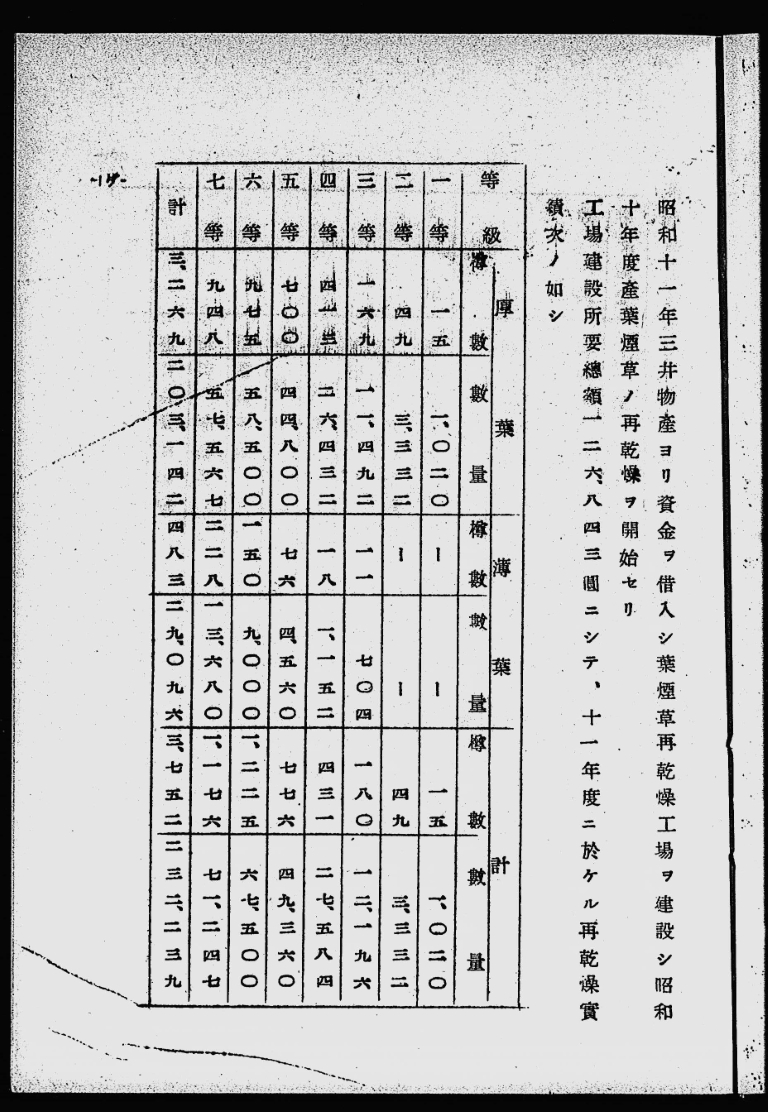 昭和十一年三井物産ヨリ資金ヲ借入シ葉煙草再乾燥工場ヲ建設シ昭和
十年度産葉煙草ノ再乾燥ヲ開始セリ
工場建設所要總額一二六、八四三圓ニシテ、十一年度ニ於ケル再乾燥實
績次ノ如シ
等級 厚葉 薄葉 計
樽數 數量 樽數 數量 樽數 數量
一等 一五 一、〇二〇 ー ー 一五 一、〇二〇
二等 四九 三、三三二 ー ー 四九 三、三三二
三等 一六九 一一、四九二 一一 七〇四 一八〇 一二、一九六
四等 四一三 二六、四三二 一八 一、一五二 四三一 二七、五八四
五等 七〇〇 四四、八〇〇 七六 四、五六〇 七七六 四九、三六〇
六等 九七五 五八、五〇〇 一五〇 九、〇〇〇 一、二二五 六七、五〇〇
七等 九四八 五七、五六七 二二八 一三、六八〇 一、一七六 七一、二四七
計 三、二六九 二〇三、一四二 四八三 二九、〇九六 三、七五二 二三二、二三九